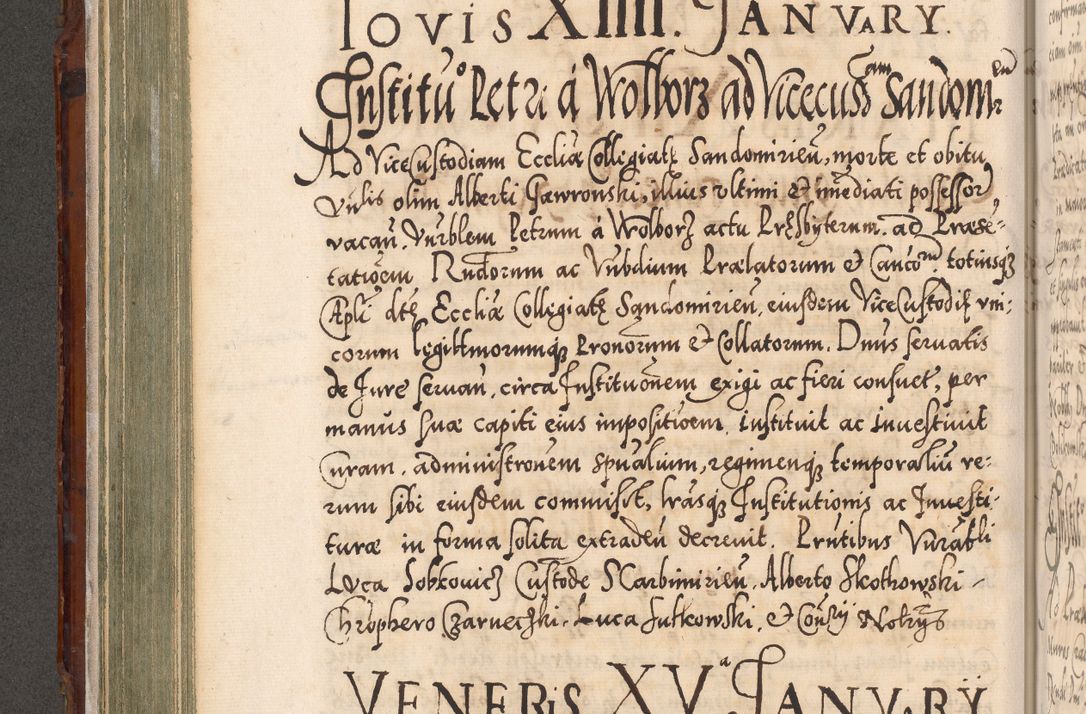 IOVIS XIIII. IANVARY.
Institu͠o Petri á Wolborz ad Vicecus͠eam Sandomirien
Ad ViceCustodiam Eccliæ Collegiatę Sandomirieñ, morte et obitu
Vnlis olim Alberti Gawronski, illius vltimi et im̃ediati possessor
vacañ. Vnrblem Petrum á Wolborz actu Pręsbyterum. ad Præse-
tatiõem Rndorum ac Vnbdium Prælatorum et Canco͠m. totiusq
Capli dtę Eccliæ Collegiatę Sandomirieñ, eiusdem ViceCustodię vni-
corum legittimorumq Pronorum et Collatorum. Dnus servatis
de Jure servañ, circa Instituõnem exigi ac fieri consuet, per
manus suæ capiti eius impositiõem instituit ac Investivit
Curam. administronem spũalium, regimenq temporaliũ re-
rum sibi eiusdem commisit, lrãsq Institutionis ac Investi-
turæ in forma solita extradeñ decrevit. Prñtibus Vnrabli
Lvca Sobkovicz Custode SCarbimirieñ, Alberto Skothowski
Chrophero Czarnechki. Luca Sutkowski, et Coñsrij Notrijs
VENERIS XV.a IANVARY